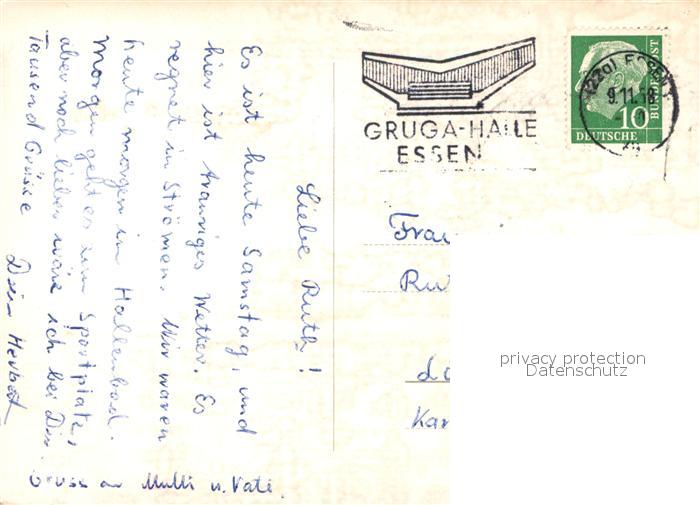 Liebe Ruth!
Es ist heute Samstag, und
hier ist trauriges Wetter. Es
regnet in Strömen. Wir waren
heute morgen im Hallenbad.
Morgen geht es zum Sportplatz,
aber noch lieber wäre ich bei Dir.
Tausend Grüsse
Dein Herbert
Gruss an Mutti u. Vati.
GRUGA-HALLE
ESSEN
(22a) ESSEN
9.11.58
10
DEUTSCHE
BUNDESPOST
Frau
privacy protection
Datenschutz